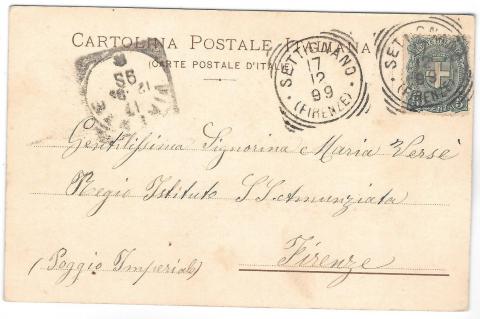 CARTOLINA POSTALE ITALIANA
(CARTE POSTALE D'ITALIE)
SETTIGNANO
17
12
99
(FIRENZE)
Gentilissima Signorina Maria Versè
Regio Istituto SS Annunziata
Firenze
(Poggio Imperiale)